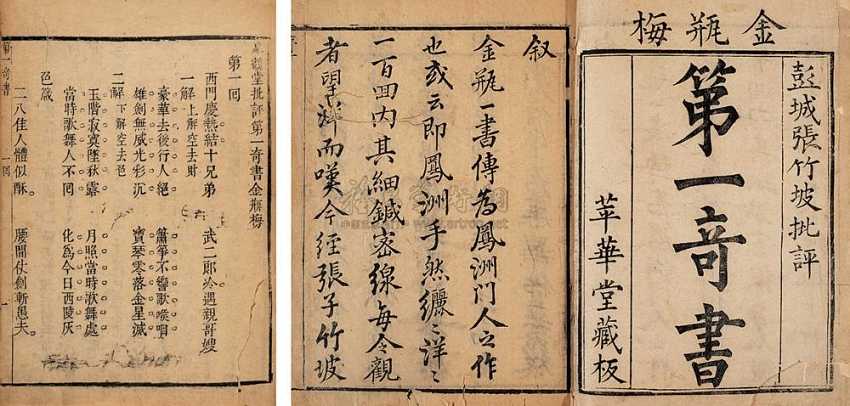 金瓶梅
彭城張竹坡批評
第一奇書
苹華堂藏板
叙
金瓶一書傳為鳳洲門人之作
也或云即鳳洲手然纚纚洋洋
一百回内其細鍼密線每令觀
者望洋而嘆今經張子竹坡
堂批評第一奇書金瓶梅
第一回
西門慶熱結十兄弟 武二郎冷遇親哥嫂
一解 上解空去財
豪華去後行人絕 簫箏不響歌喉咽
雄劍無威光彩沉 寶琴零落金星滅
二解 下解空去色
玉階寂寞墜秋露 月照當時歌舞處
當時歌舞人不回 化為今日西陵灰
色箴
二八佳人體似酥 腰間仗劍斬愚夫
第一奇書
一回
一